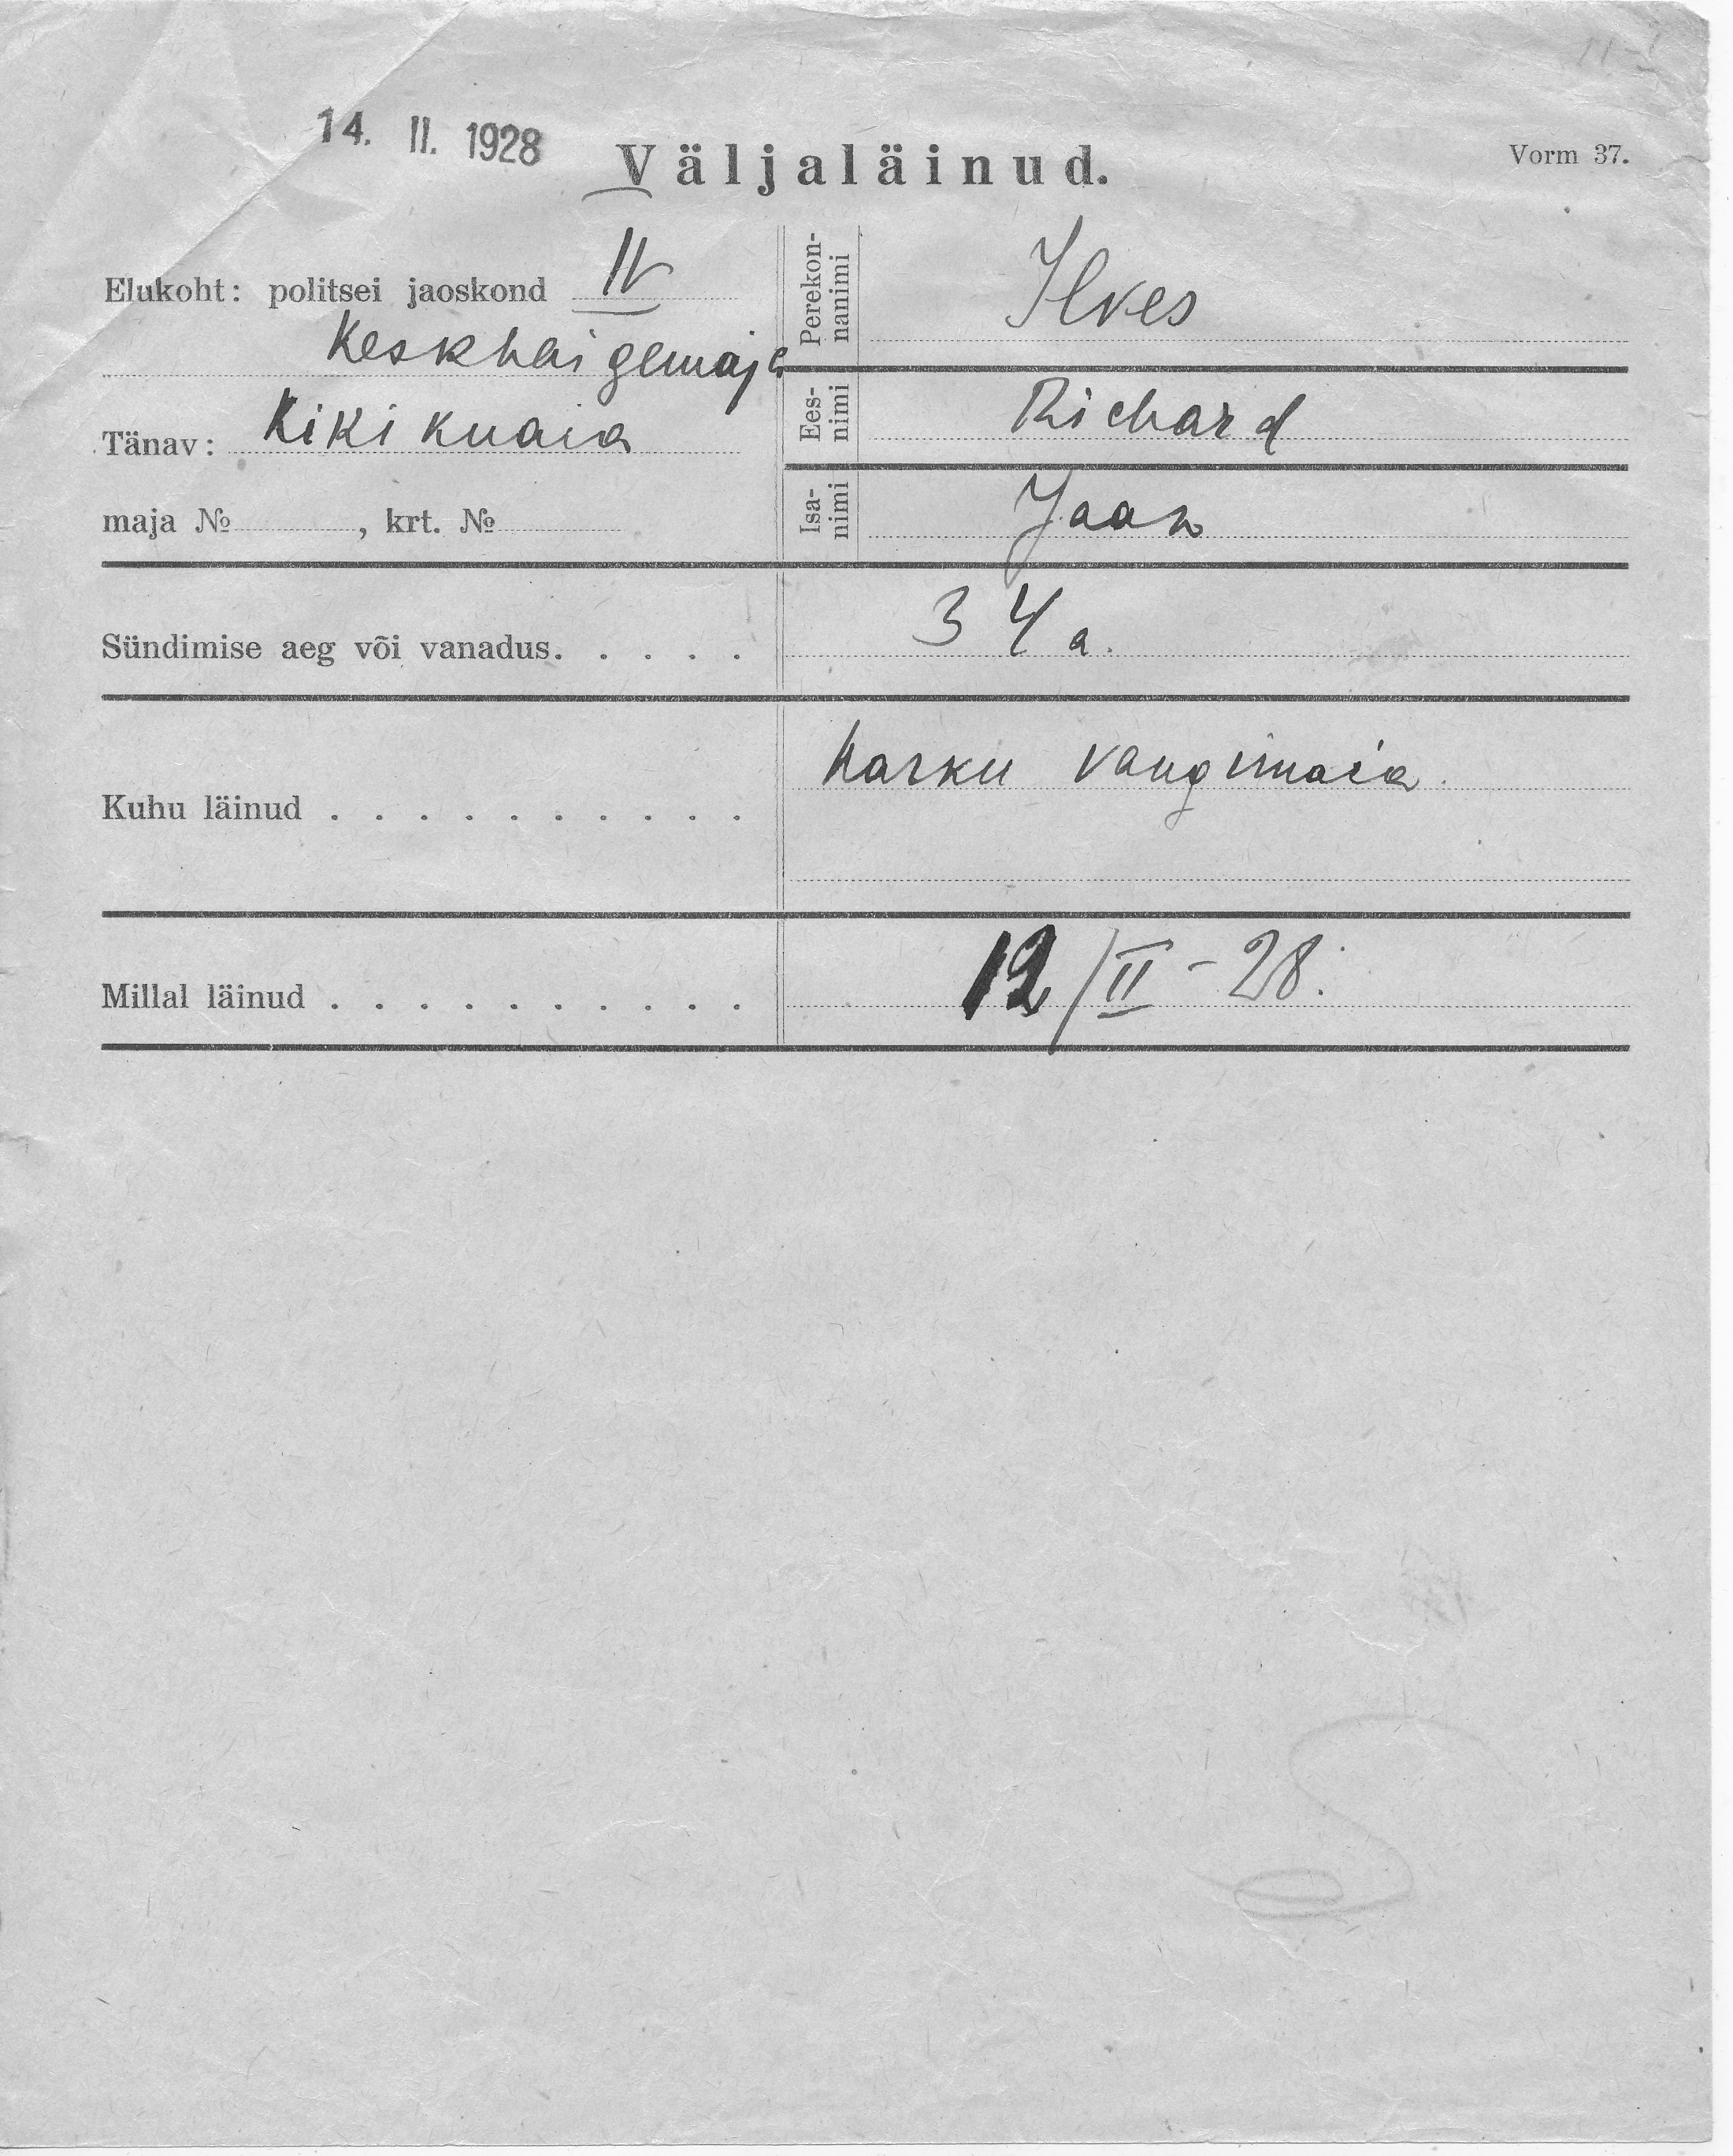 14. II. 1928
Väljaläinud.
Vorm 37.
Elukoht: politsei jaoskond IV
Keskhaigemaja
Tänav: Kikikuaia
maja № , krt. №
Perekon-
nanimi
Ilves
Ees-
nimi
Richard
Isa-
nimi
Jaan
Sündimise aeg või vanadus. . . . .
34 a.
Kuhu läinud . . . . . . . . . .
Harku vangimaia.
Millal läinud . . . . . . . . . .
12/II - 28.